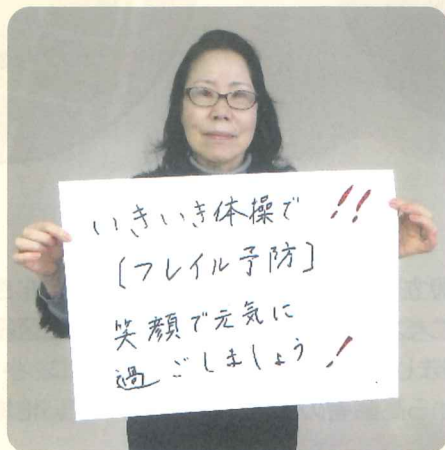 いきいき体操で!!
[フレイル予防]
笑顔で元気に
過ごしましょう!